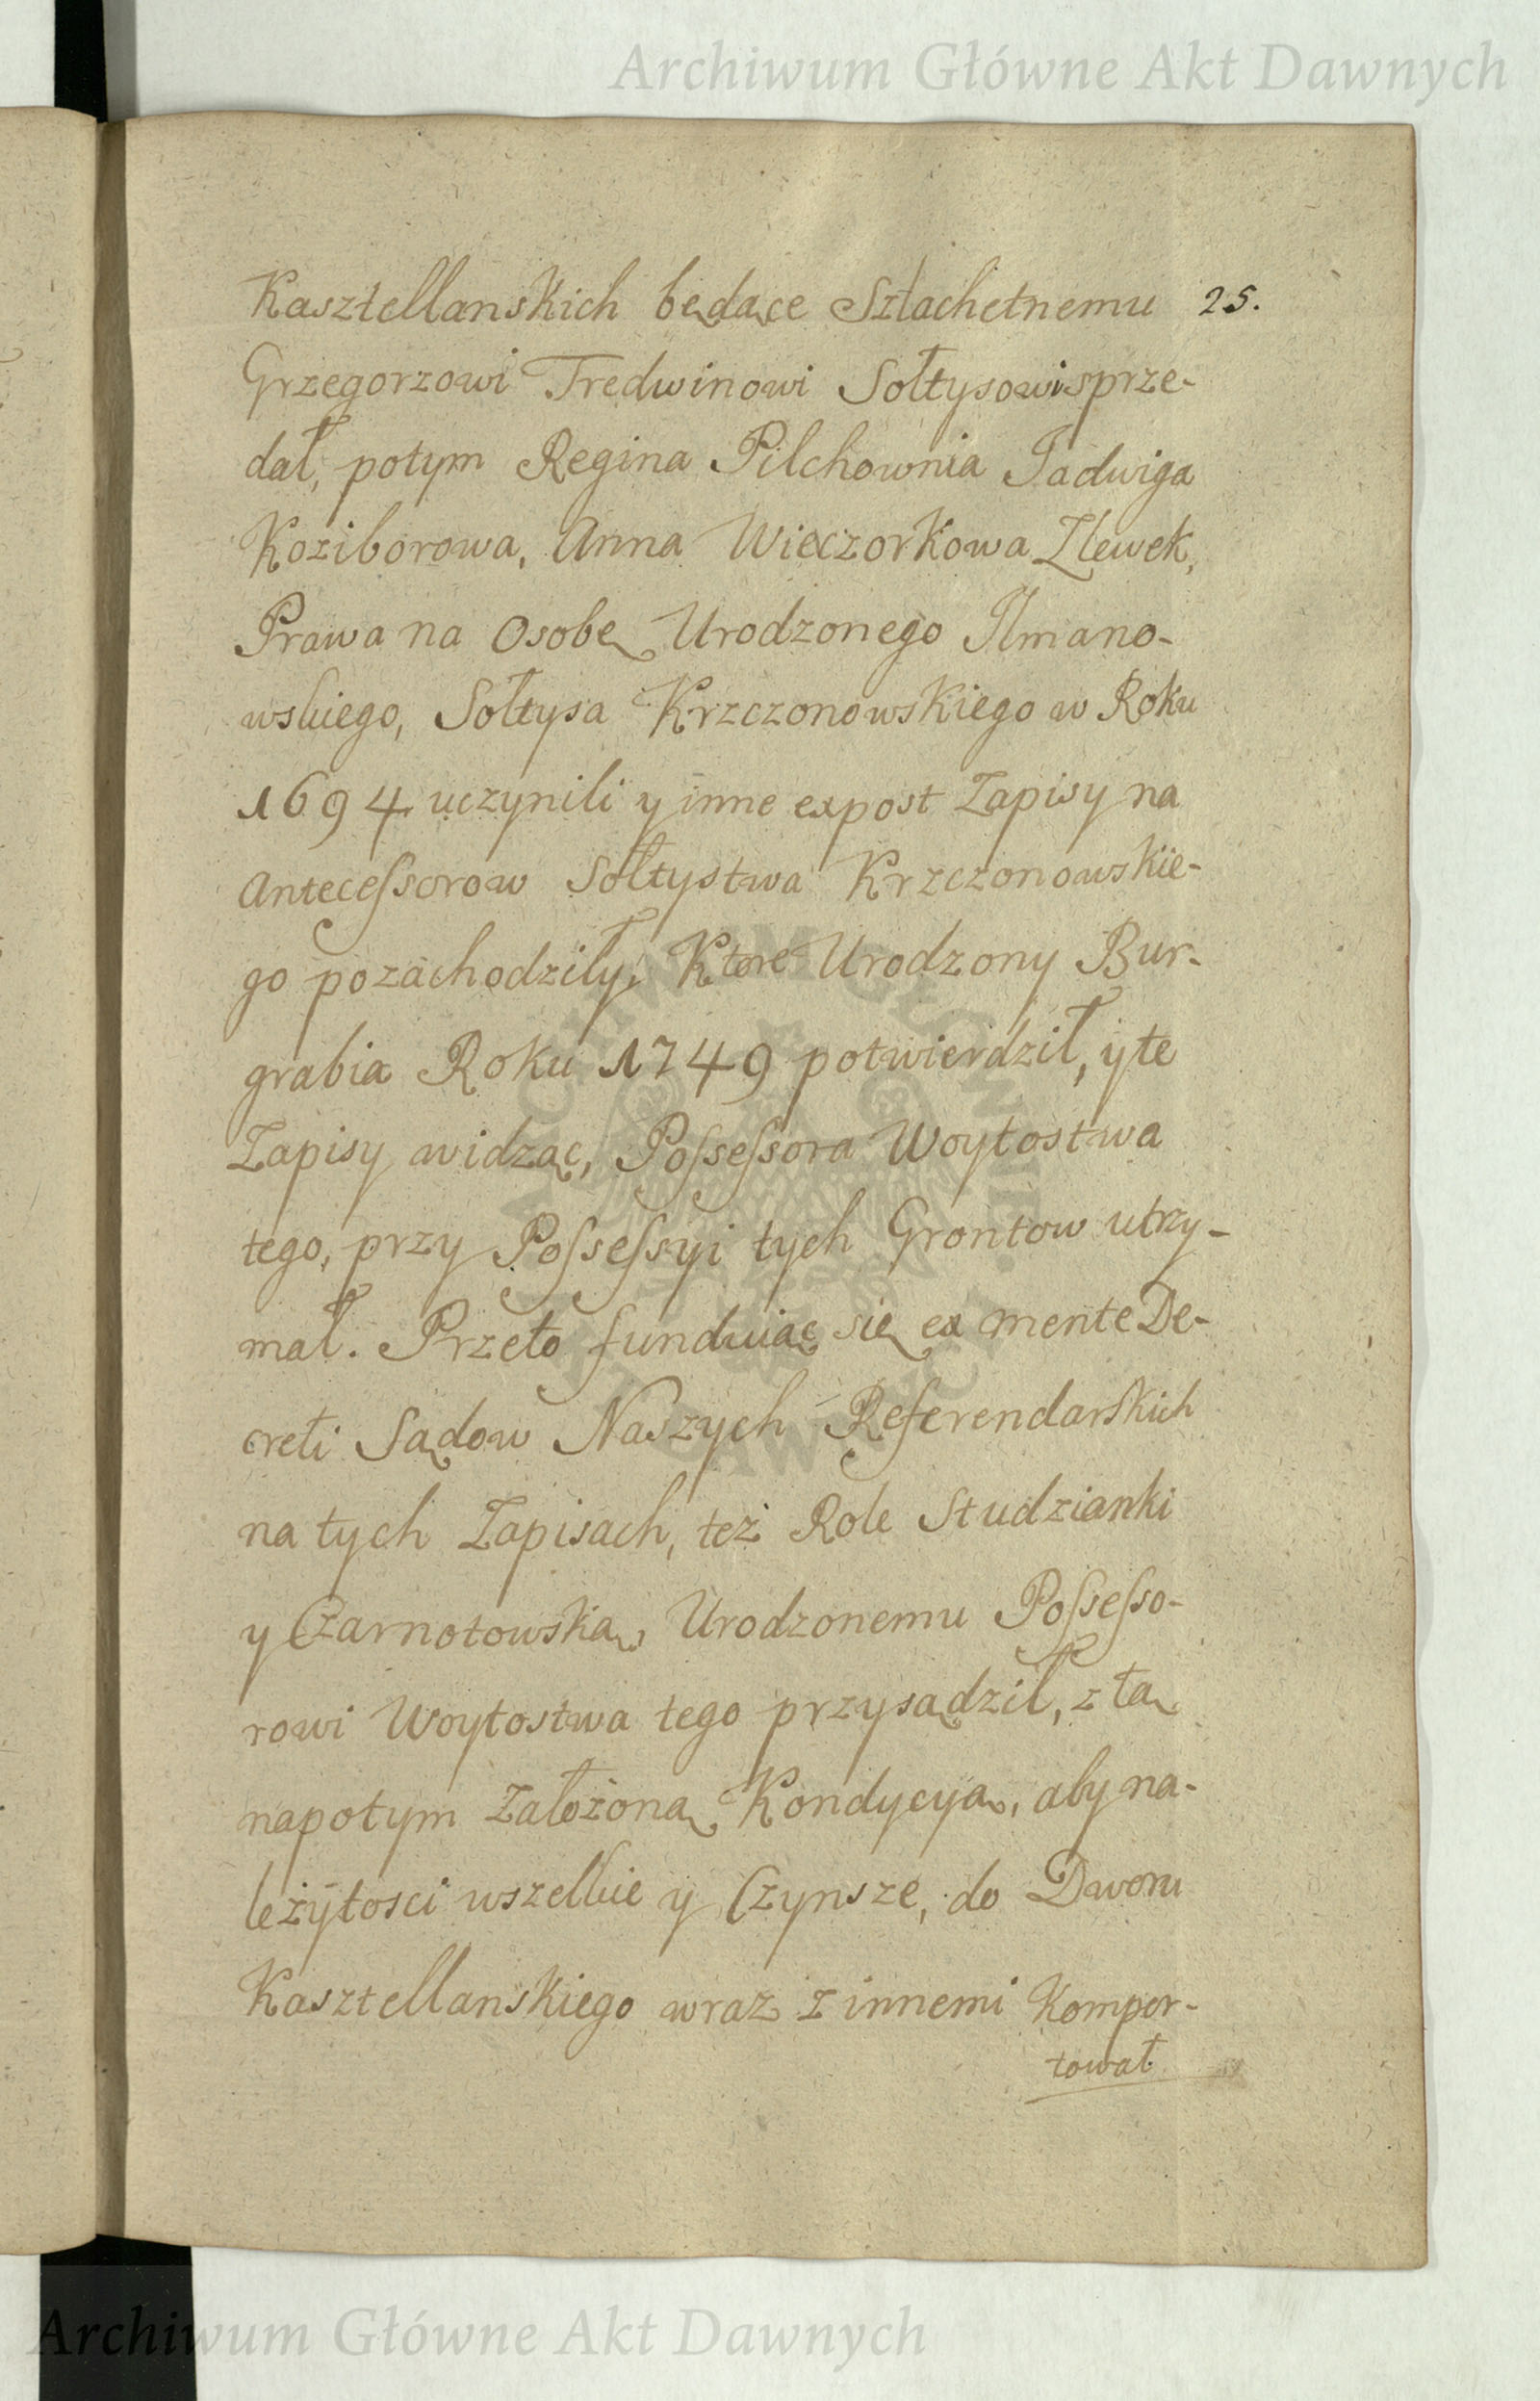 Archiwum Główne Akt Dawnych
Kasztellanskich będące Szlachetnemu 25.
Grzegorzowi Tredwinowi Sołtysowi sprze-
dał, potym Regina Pilchownia Jadwiga
Koziborowa, Anna Wieczorkowa Zlewek,
Prawa na Osobę Urodzonego Ilmano-
wskiego, Sołtysa Krzczonowskiego w Roku
1694 uczynili y inne expost Zapisy na
Antecessorow Sołtystwa Krzczonowskie-
go pozachodziły, Ktore Urodzony Bur-
grabia Roku 1749 potwierdził, y te
Zapisy widząc, Possessora Woytostwa
tego, przy Possessyi tych Grontow utrzy-
mał. Przeto funduiąc się ex mente De-
creti Sądow Naszych Referendarskich
na tych Zapisach, też Role Studzianki
y Czarnotowską, Urodzonemu Possesso-
rowi Woytostwa tego przysądził, z tą
napotym Założoną Kondycyą, aby na-
leżytosci wszelkie y Czynsze, do Dworu
Kasztellanskiego wraz z innemi Kompor-
tował
Archiwum Główne Akt Dawnych